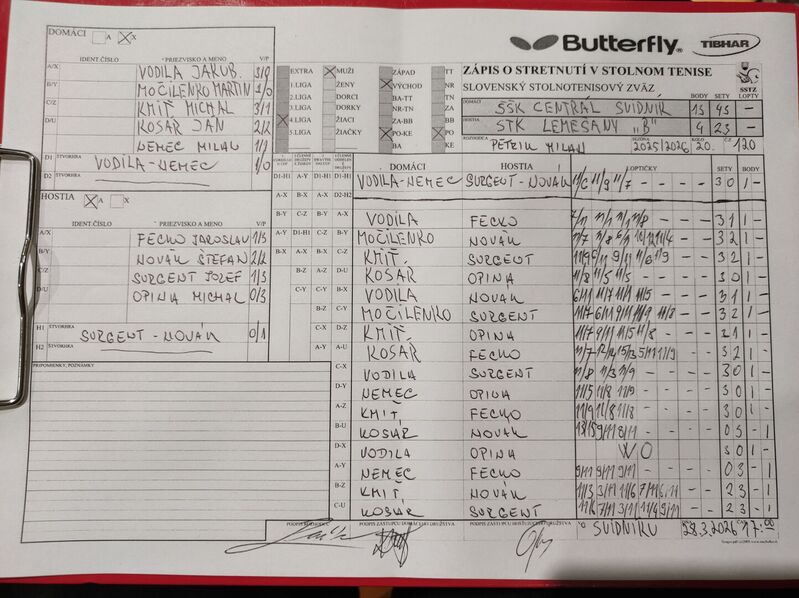 DOMÁCI A X
IDENT.ČÍSLO PRIEZVISKO A MENO V/P
A/X VODILA JAKUB
B/Y MOČILENKO MARTIN
C/Z KMIŤ MICHAL 3/1
D/U KOSÁR JÁN 2/2
NEMEC MILAN 1/1
D1 ŠTVORHRA VODILA-NEMEC 1/0
D2 ŠTVORHRA
HOSTIA A X
IDENT.ČÍSLO PRIEZVISKO A MENO V/P
A/X FECKO JAROSLAV 1/3
B/Y NOVÁK ŠTEFAN 2/2
C/Z SURGENT JOZEF 1/3
D/U OPINA MICHAL 0/3
H1 ŠTVORHRA SURGENT-NOVÁK 0/1
H2 ŠTVORHRA
PRIPOMIENKY, POZNÁMKY
Butterfly TIBHAR
EXTRA MUŽI ZÁPAD TT
1.LIGA ŽENY VÝCHOD NR
2.LIGA DORCI BA-TT TN
3.LIGA DORKY NR-TN ZA
4.LIGA ŽIACI ZA-BB BB
5.LIGA ŽIAČKY PO-KE PO
BA KE
ZÁPIS O STRETNUTÍ V STOLNOM TENISE
SLOVENSKÝ STOLNOTENISOVÝ ZVÄZ SSTZ
BODY SETY LOPTY
DOMÁCI ŠŠK CENTRAL SVIDNÍK 13 43 —
HOSTIA STK LEMEŠANY "B" 4 23 —
ROZHODCA PETRIK MILAN SEZÓNA 2025/2026 KOLO 20. 120
DOMÁCI HOSTIA LOPTIČKY SETY BODY
VODILA-NEMEC SURGENT-NOVÁK 11/6 11/9 11/7 - - - - 3 0 1 -
VODILA FECKO - - - 3 1 1 -
MOČILENKO NOVÁK - - 3 2 1 -
KMIŤ SURGENT - - 3 2 1 -
KOSÁR OPINA 11/8 11/5 11/5 - - - - 3 0 1 -
VODILA NOVÁK 6/11 11/7 11/7 11/5 - - - 3 1 1 -
MOČILENKO SURGENT 11/7 6/11 9/11 11/9 11/8 - - 3 2 1 -
KMIŤ OPINA 11/7 9/11 11/5 11/8 - - - 1 -
KOSÁR FECKO - - 3 2 1 -
VODILA SURGENT 11/8 11/3 11/9 - - - - 3 0 1 -
NEMEC OPINA 11/5 11/8 11/9 - - - - 3 0 1 -
KMIŤ FECKO 11/9 11/8 11/8 - - - - 3 0 1 -
KOSÁR NOVÁK 13/15 9/11 8/11 - - - - 0 3 - 1
VODILA OPINA WO 3 0 1 -
NEMEC FECKO 9/11 9/11 9/11 - - - - 0 3 - 1
KMIŤ NOVÁK 11/3 3/11 11/6 7/11 - - 2 3 - 1
KOSÁR SURGENT 11/6 7/11 9/11 - - 2 3 - 1
PODPIS ROZHODCU PODPIS ZÁSTUPCU DOMÁCEHO DRUŽSTVA PODPIS ZÁSTUPCU HOSŤUJÚCEHO DRUŽSTVA
SVIDNÍKU 28.3.2026 17:00